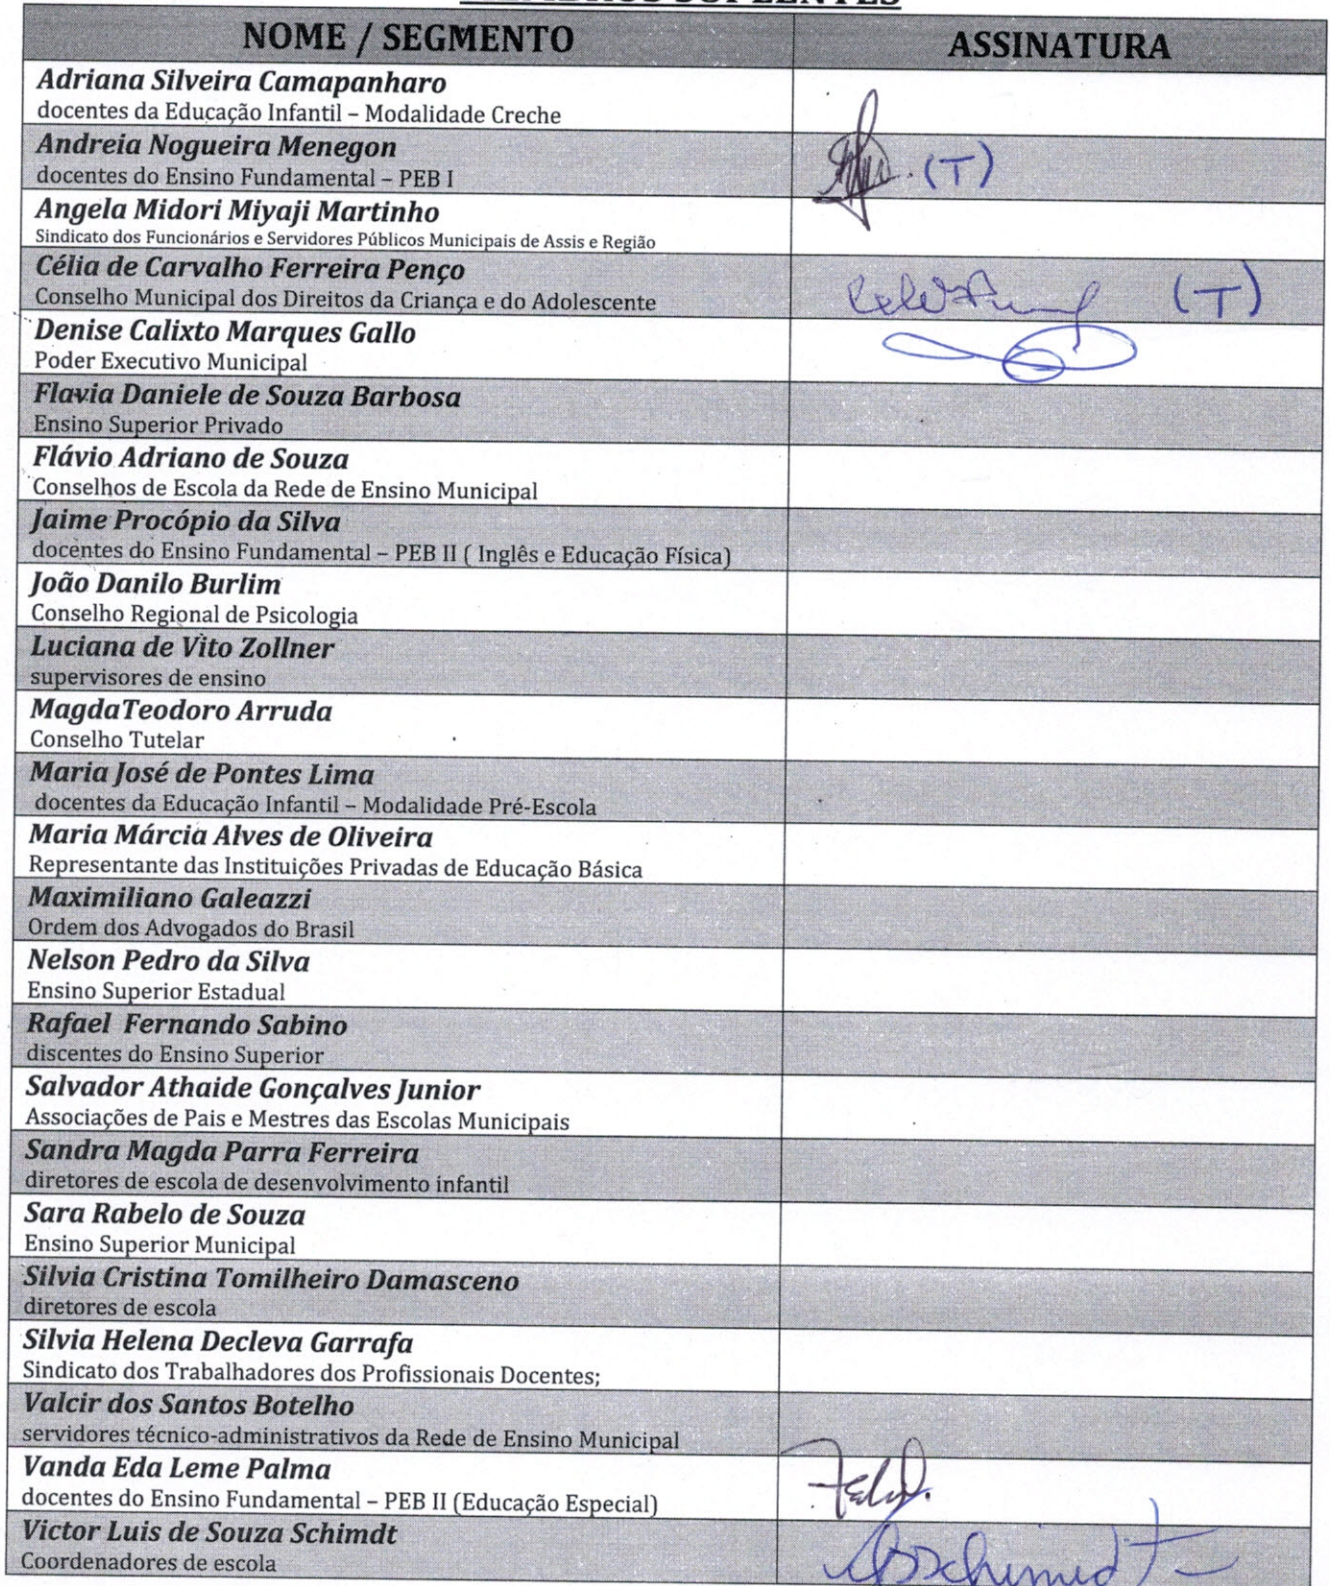 NOME / SEGMENTO ASSINATURA
Adriana Silveira Camapanharo
docentes da Educação Infantil – Modalidade Creche
Andreia Nogueira Menegon
docentes do Ensino Fundamental – PEB I
(T)
Angela Midori Miyaji Martinho
Sindicato dos Funcionários e Servidores Públicos Municipais de Assis e Região
Célia de Carvalho Ferreira Penço
Conselho Municipal dos Direitos da Criança e do Adolescente
(T)
Denise Calixto Marques Gallo
Poder Executivo Municipal
Flavia Daniele de Souza Barbosa
Ensino Superior Privado
Flávio Adriano de Souza
Conselhos de Escola da Rede de Ensino Municipal
Jaime Procópio da Silva
docentes do Ensino Fundamental – PEB II ( Inglês e Educação Física)
João Danilo Burlim
Conselho Regional de Psicologia
Luciana de Vito Zollner
supervisores de ensino
MagdaTeodoro Arruda
Conselho Tutelar
Maria José de Pontes Lima
docentes da Educação Infantil – Modalidade Pré-Escola
Maria Márcia Alves de Oliveira
Representante das Instituições Privadas de Educação Básica
Maximiliano Galeazzi
Ordem dos Advogados do Brasil
Nelson Pedro da Silva
Ensino Superior Estadual
Rafael Fernando Sabino
discentes do Ensino Superior
Salvador Athaide Gonçalves Junior
Associações de Pais e Mestres das Escolas Municipais
Sandra Magda Parra Ferreira
diretores de escola de desenvolvimento infantil
Sara Rabelo de Souza
Ensino Superior Municipal
Silvia Cristina Tomilheiro Damasceno
diretores de escola
Silvia Helena Decleva Garrafa
Sindicato dos Trabalhadores dos Profissionais Docentes;
Valcir dos Santos Botelho
servidores técnico-administrativos da Rede de Ensino Municipal
Vanda Eda Leme Palma
docentes do Ensino Fundamental – PEB II (Educação Especial)
Victor Luis de Souza Schimdt
Coordenadores de escola